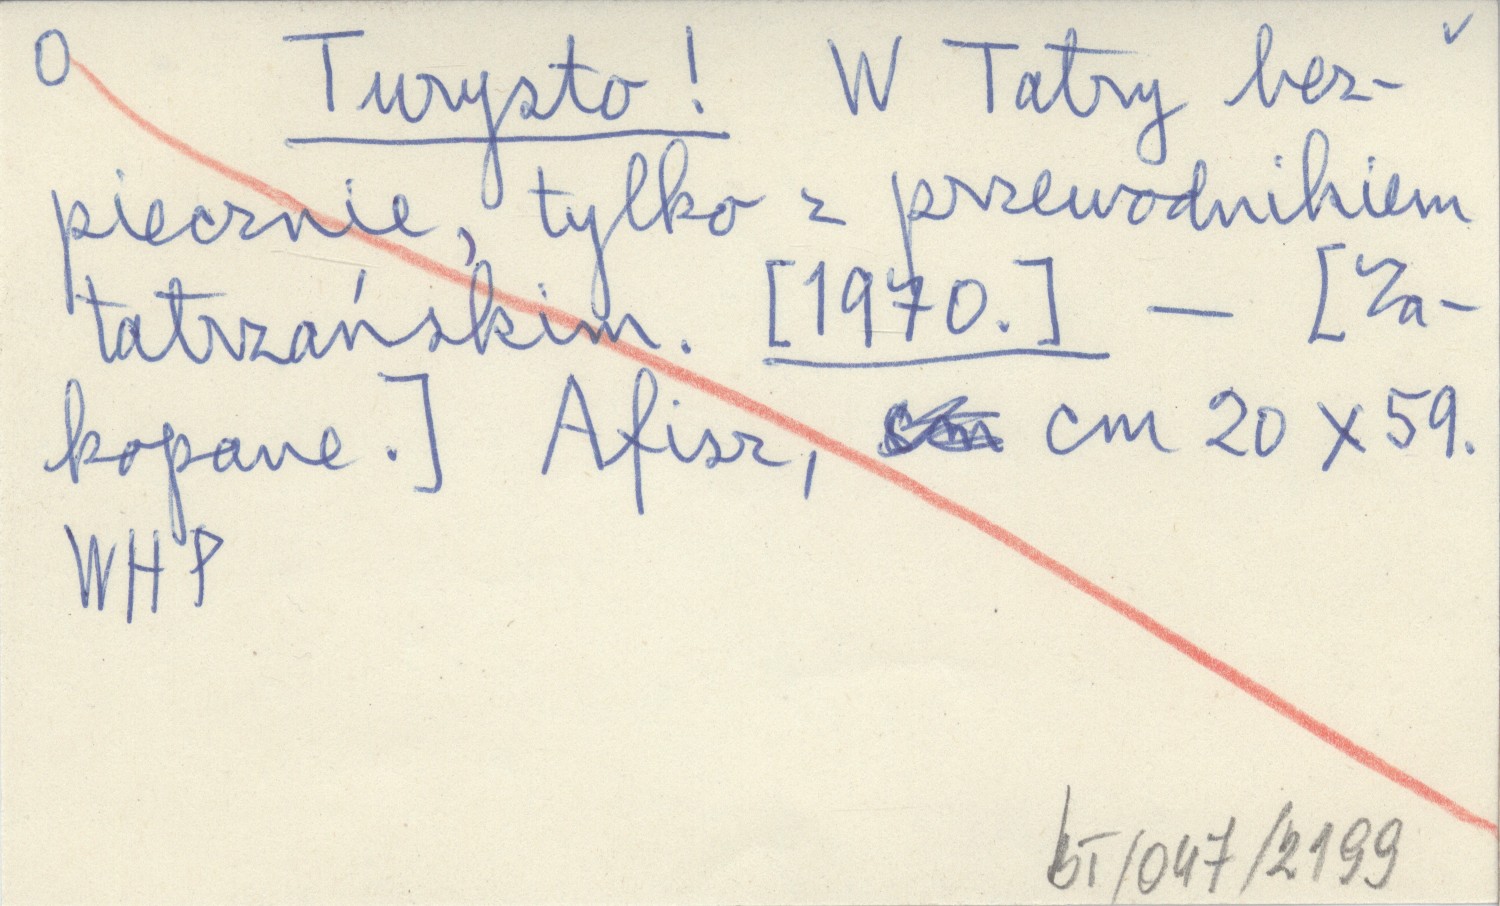 O Turysto! W Tatry bez-
piecznie, tylko z przewodnikiem
tatrzańskim. [1970.] — [Za-
kopane.] Afisz, cm 20 x 59.
WHP
bT/047/2199